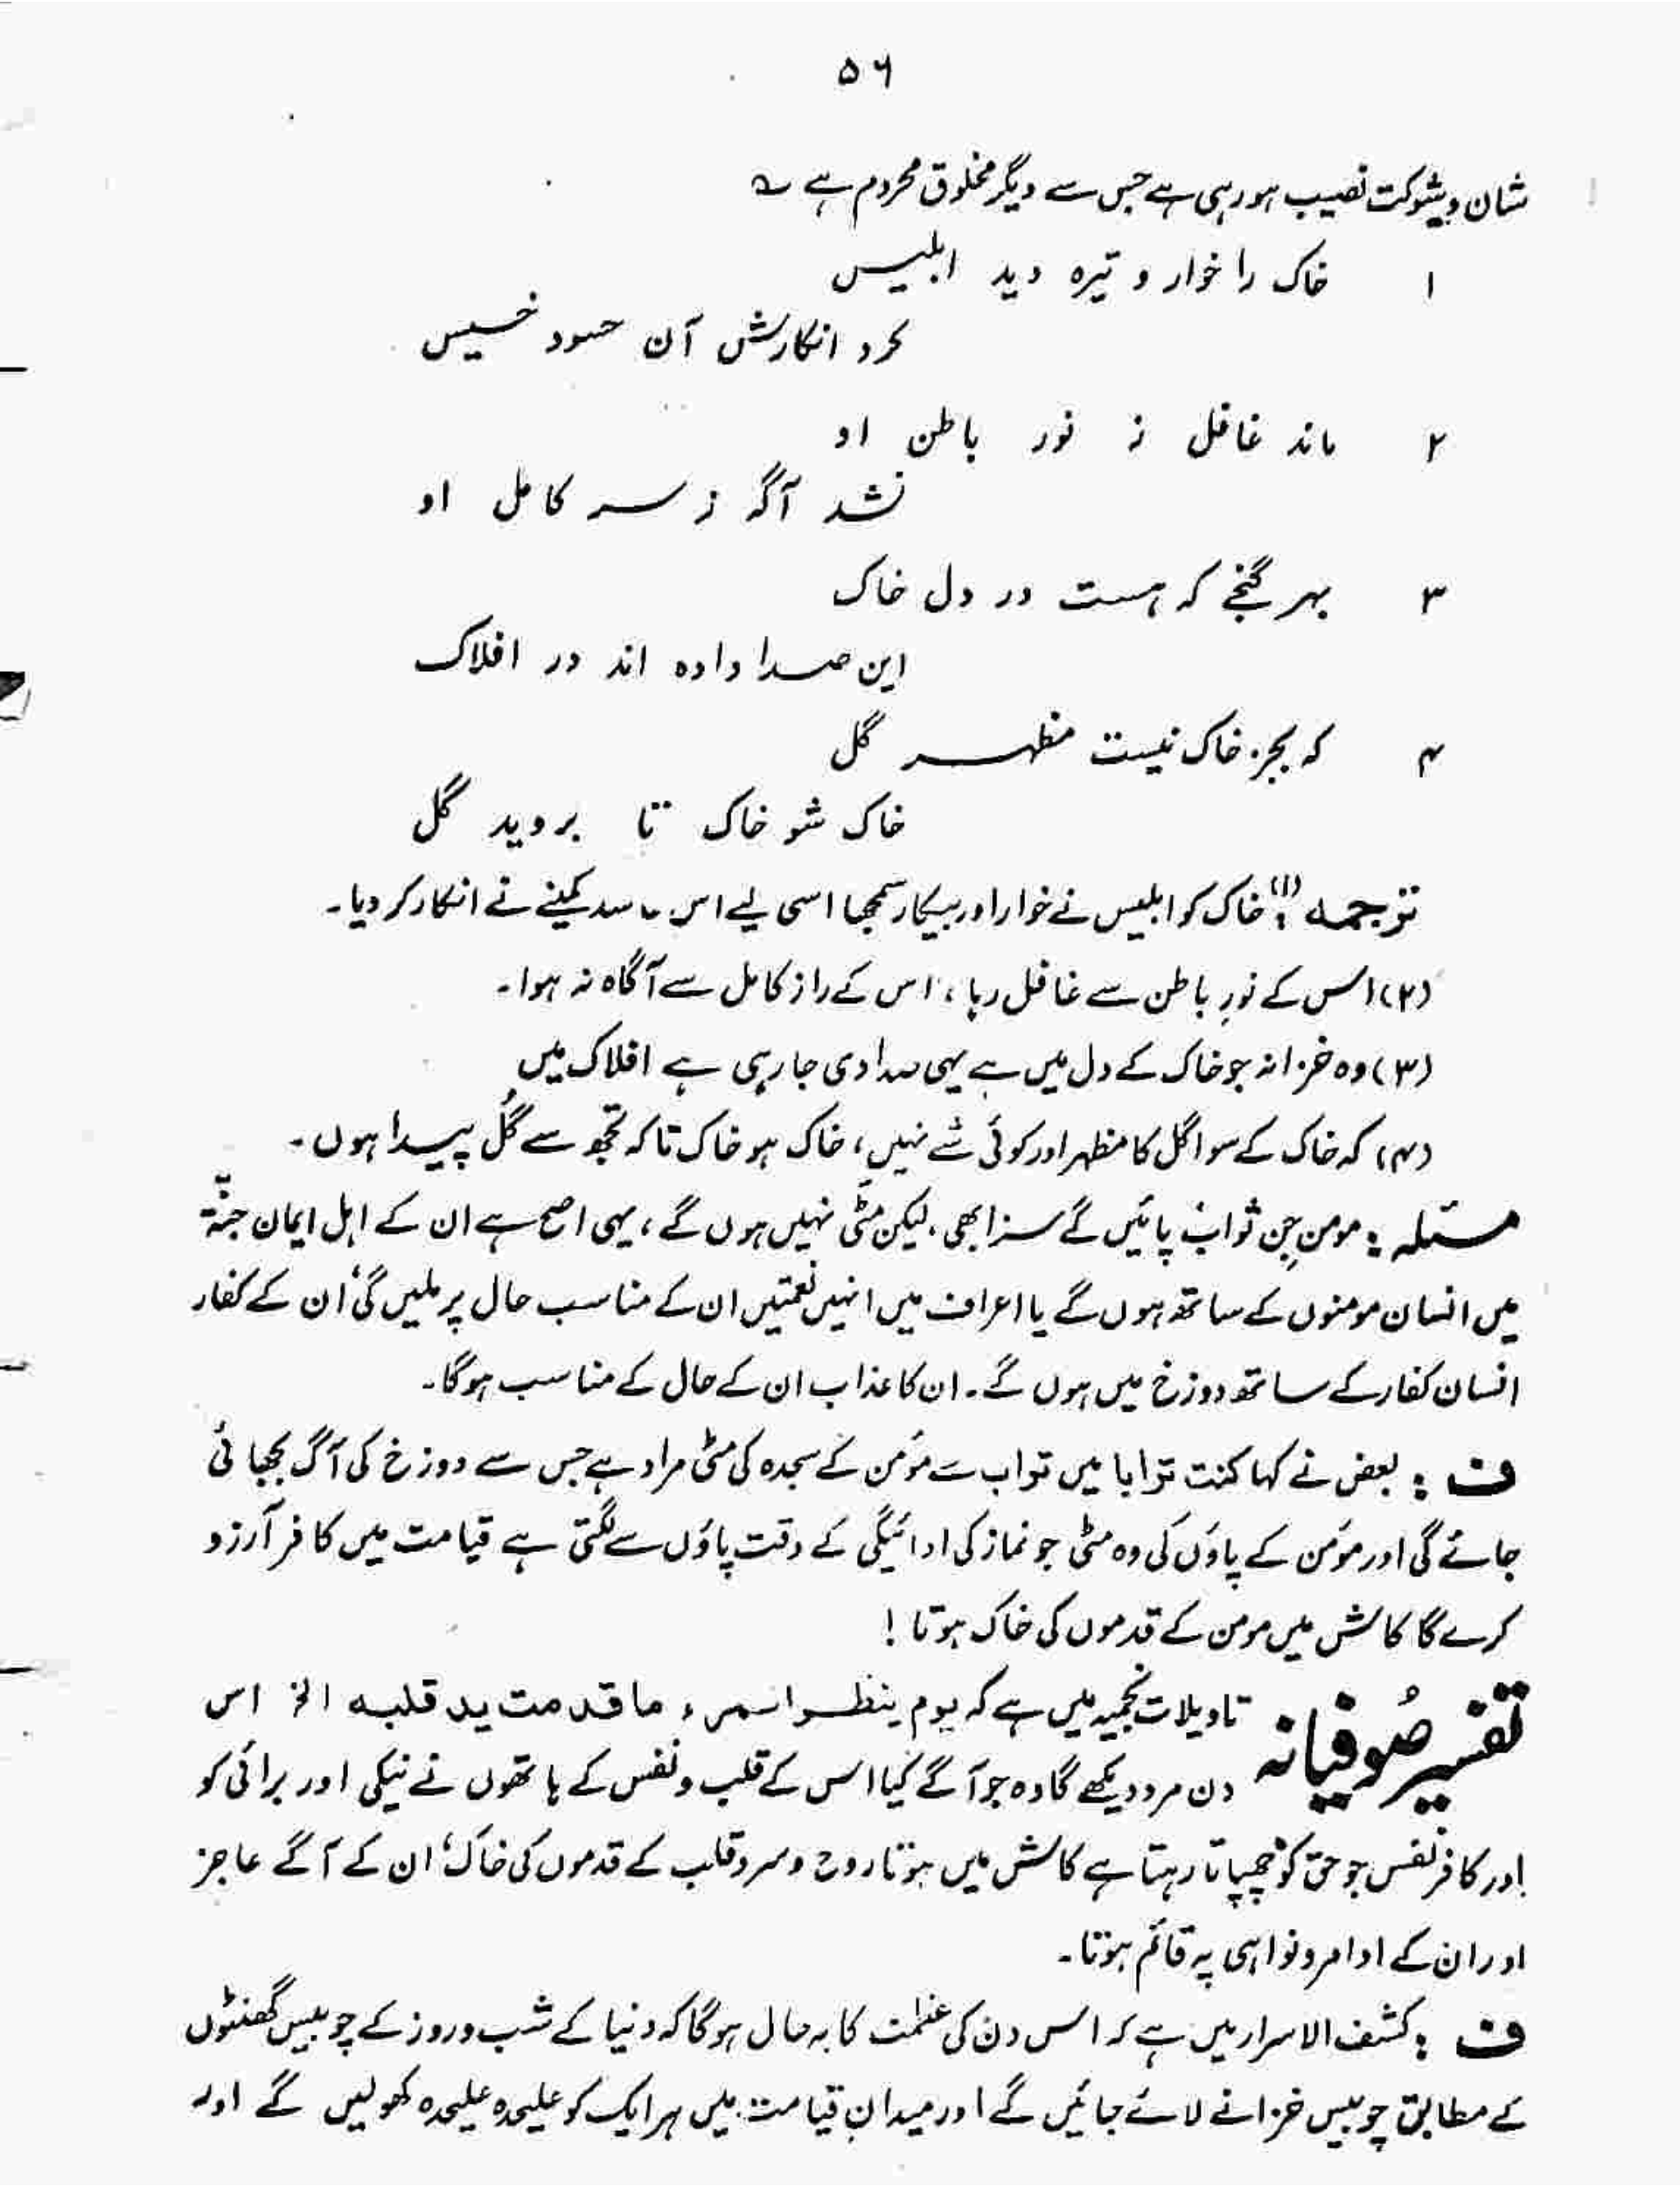 ۵۶
شان و شوکت نصیب ہو رہی ہے جس سے دیگر مخلوق محروم ہے ؎
۱ خاک را خوار و تیرہ دید ابلیس
کرد انکارش آن حسود خسیس
۲ ماند غافل ز نور باطن او
نشد آگہ ز سر کامل او
۳ بہر گنجے کہ ہست در دل خاک
این صدا دادہ اند در افلاک
۴ کہ بجز خاک نیست مظہر گل
خاک شو خاک تا بروید گل
ترجمہ : (۱) خاک کو ابلیس نے خوار اور بیکار سمجھا اسی لیے اس حاسد کمینے نے انکار کر دیا۔
(۲) اس کے نورِ باطن سے غافل رہا ، اس کے راز کامل سے آگاہ نہ ہوا۔
(۳) وہ خزانہ جو خاک کے دل میں ہے یہی صدا دی جا رہی ہے افلاک میں
(۴) کہ خاک کے سوا گل کا مظہر اور کوئی شے نہیں ، خاک ہو خاک تاکہ تجھ سے گُل پیدا ہوں۔
مسئلہ : مومن جِن ثواب پائیں گے سزا بھی ، لیکن مٹی نہیں ہوں گے ، یہی اصح ہے ان کے اہل ایمان جنّۃ
میں انسان مومنوں کے ساتھ ہوں گے یا اعراف میں انہیں نعمتیں ان کے مناسب حال پر ملیں گی، ان کے کفار
انسان کفار کے ساتھ دوزخ میں ہوں گے۔ ان کا عذاب ان کے حال کے مناسب ہوگا۔
ف : بعض نے کہا کنت ترابا میں تراب سے مؤمن کے سجدہ کی مٹی مراد ہے جس سے دوزخ کی آگ بجھائی
جائے گی اور مؤمن کے پاؤں کی وہ مٹی جو نماز کی ادائیگی کے وقت پاؤں سے لگتی ہے قیامت میں کافر آرزو
کرے گا کاش میں مومن کے قدموں کی خاک ہوتا !
تفسیر صُوفیانہ تاویلات نجمیہ میں ہے کہ یوم ینظر المرء ما قدمت ید قلبہ الخ اس
دن مرد دیکھے گا وہ جو آگے کیا اس کے قلب و نفس کے ہاتھوں نے نیکی اور برائی کو
اور کافر نفس جو حق کو چھپاتا رہتا ہے کاش میں ہوتا روح و سر و قلب کے قدموں کی خاک، ان کے آگے عاجز
اور ان کے اوامر و نواہی پہ قائم ہوتا۔
ف : کشف الاسرار میں ہے کہ اس دن کی عظمت کا یہ حال ہوگا کہ دنیا کے شب و روز کے چوبیس گھنٹوں
کے مطابق چوبیس خزانے لائے جائیں گے اور میدانِ قیامت میں ہر ایک کو علیحدہ علیحدہ کھولیں گے اور